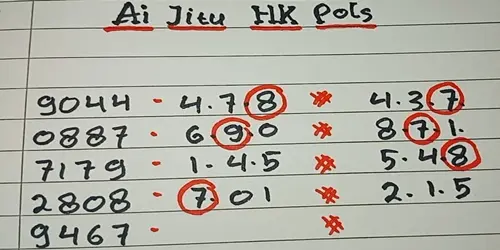 Ai Jitu HK Pols
9044 - 4.7.8 * 4.3.7
0887 - 6 9.0 * 8.7.1.
7179 - 1.4.5 * 5.4.8
2808 - 7.01 * 2.1.5
9467 - *